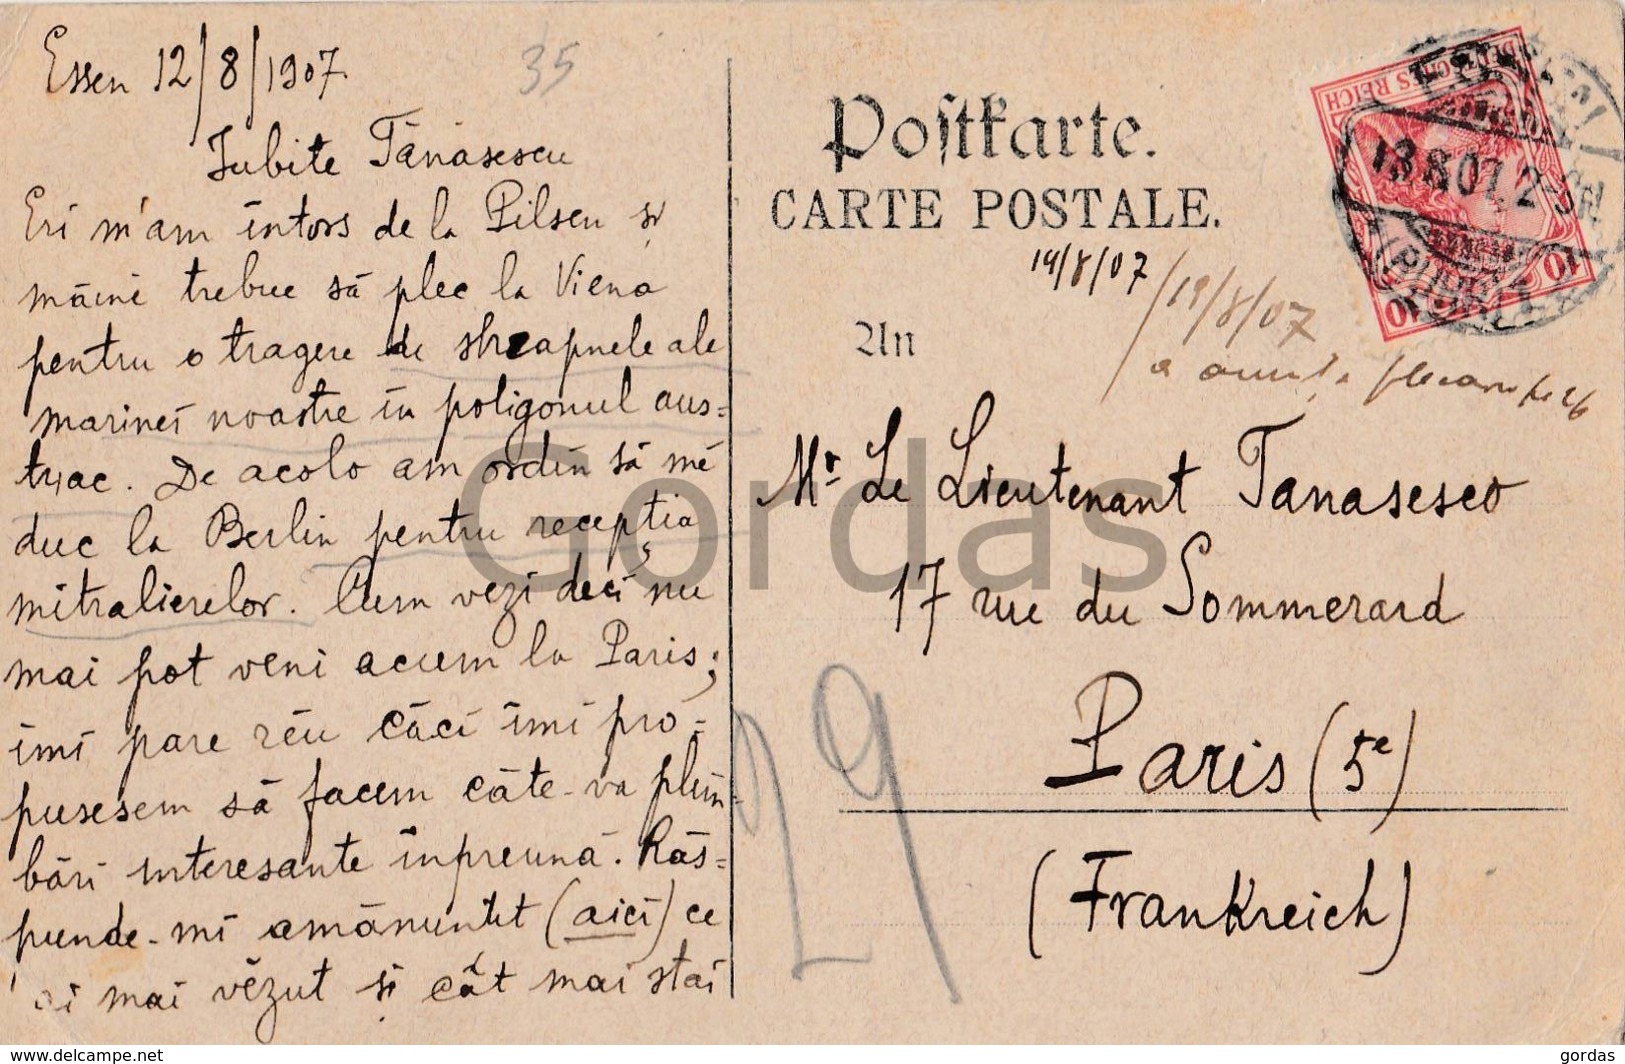 Essen 12/8/1907.
35
Iubite Tănăsescu
Eri m'am întors de la Pilsen și
mâine trebue să plec la Viena
pentru o tragere de shrapnele ale
marinei noastre în poligonul aus=
triac. De acolo am ordin să mĕ
duc la Berlin pentru recepția
mitralierelor. Cum vezi deci nu
mai pot veni acum la Paris;
îmi pare rĕu căci îmi pro=
pusesem să facem câte-va plim=
bări interesante înpreună. Răs=
punde-mi amănunțit (aici) ce
ai mai vĕzut și cât mai stai
Postkarte.
CARTE POSTALE.
19/8/07
/19/8/07
An
Mr. Le Lieutenant Tanasesco
17 rue du Sommerard
Paris (5e)
(Frankreich)
29
DEUTSCHES REICH
10
10
13.8.07. 2-3
Gordas
www.delcampe.net
gordas